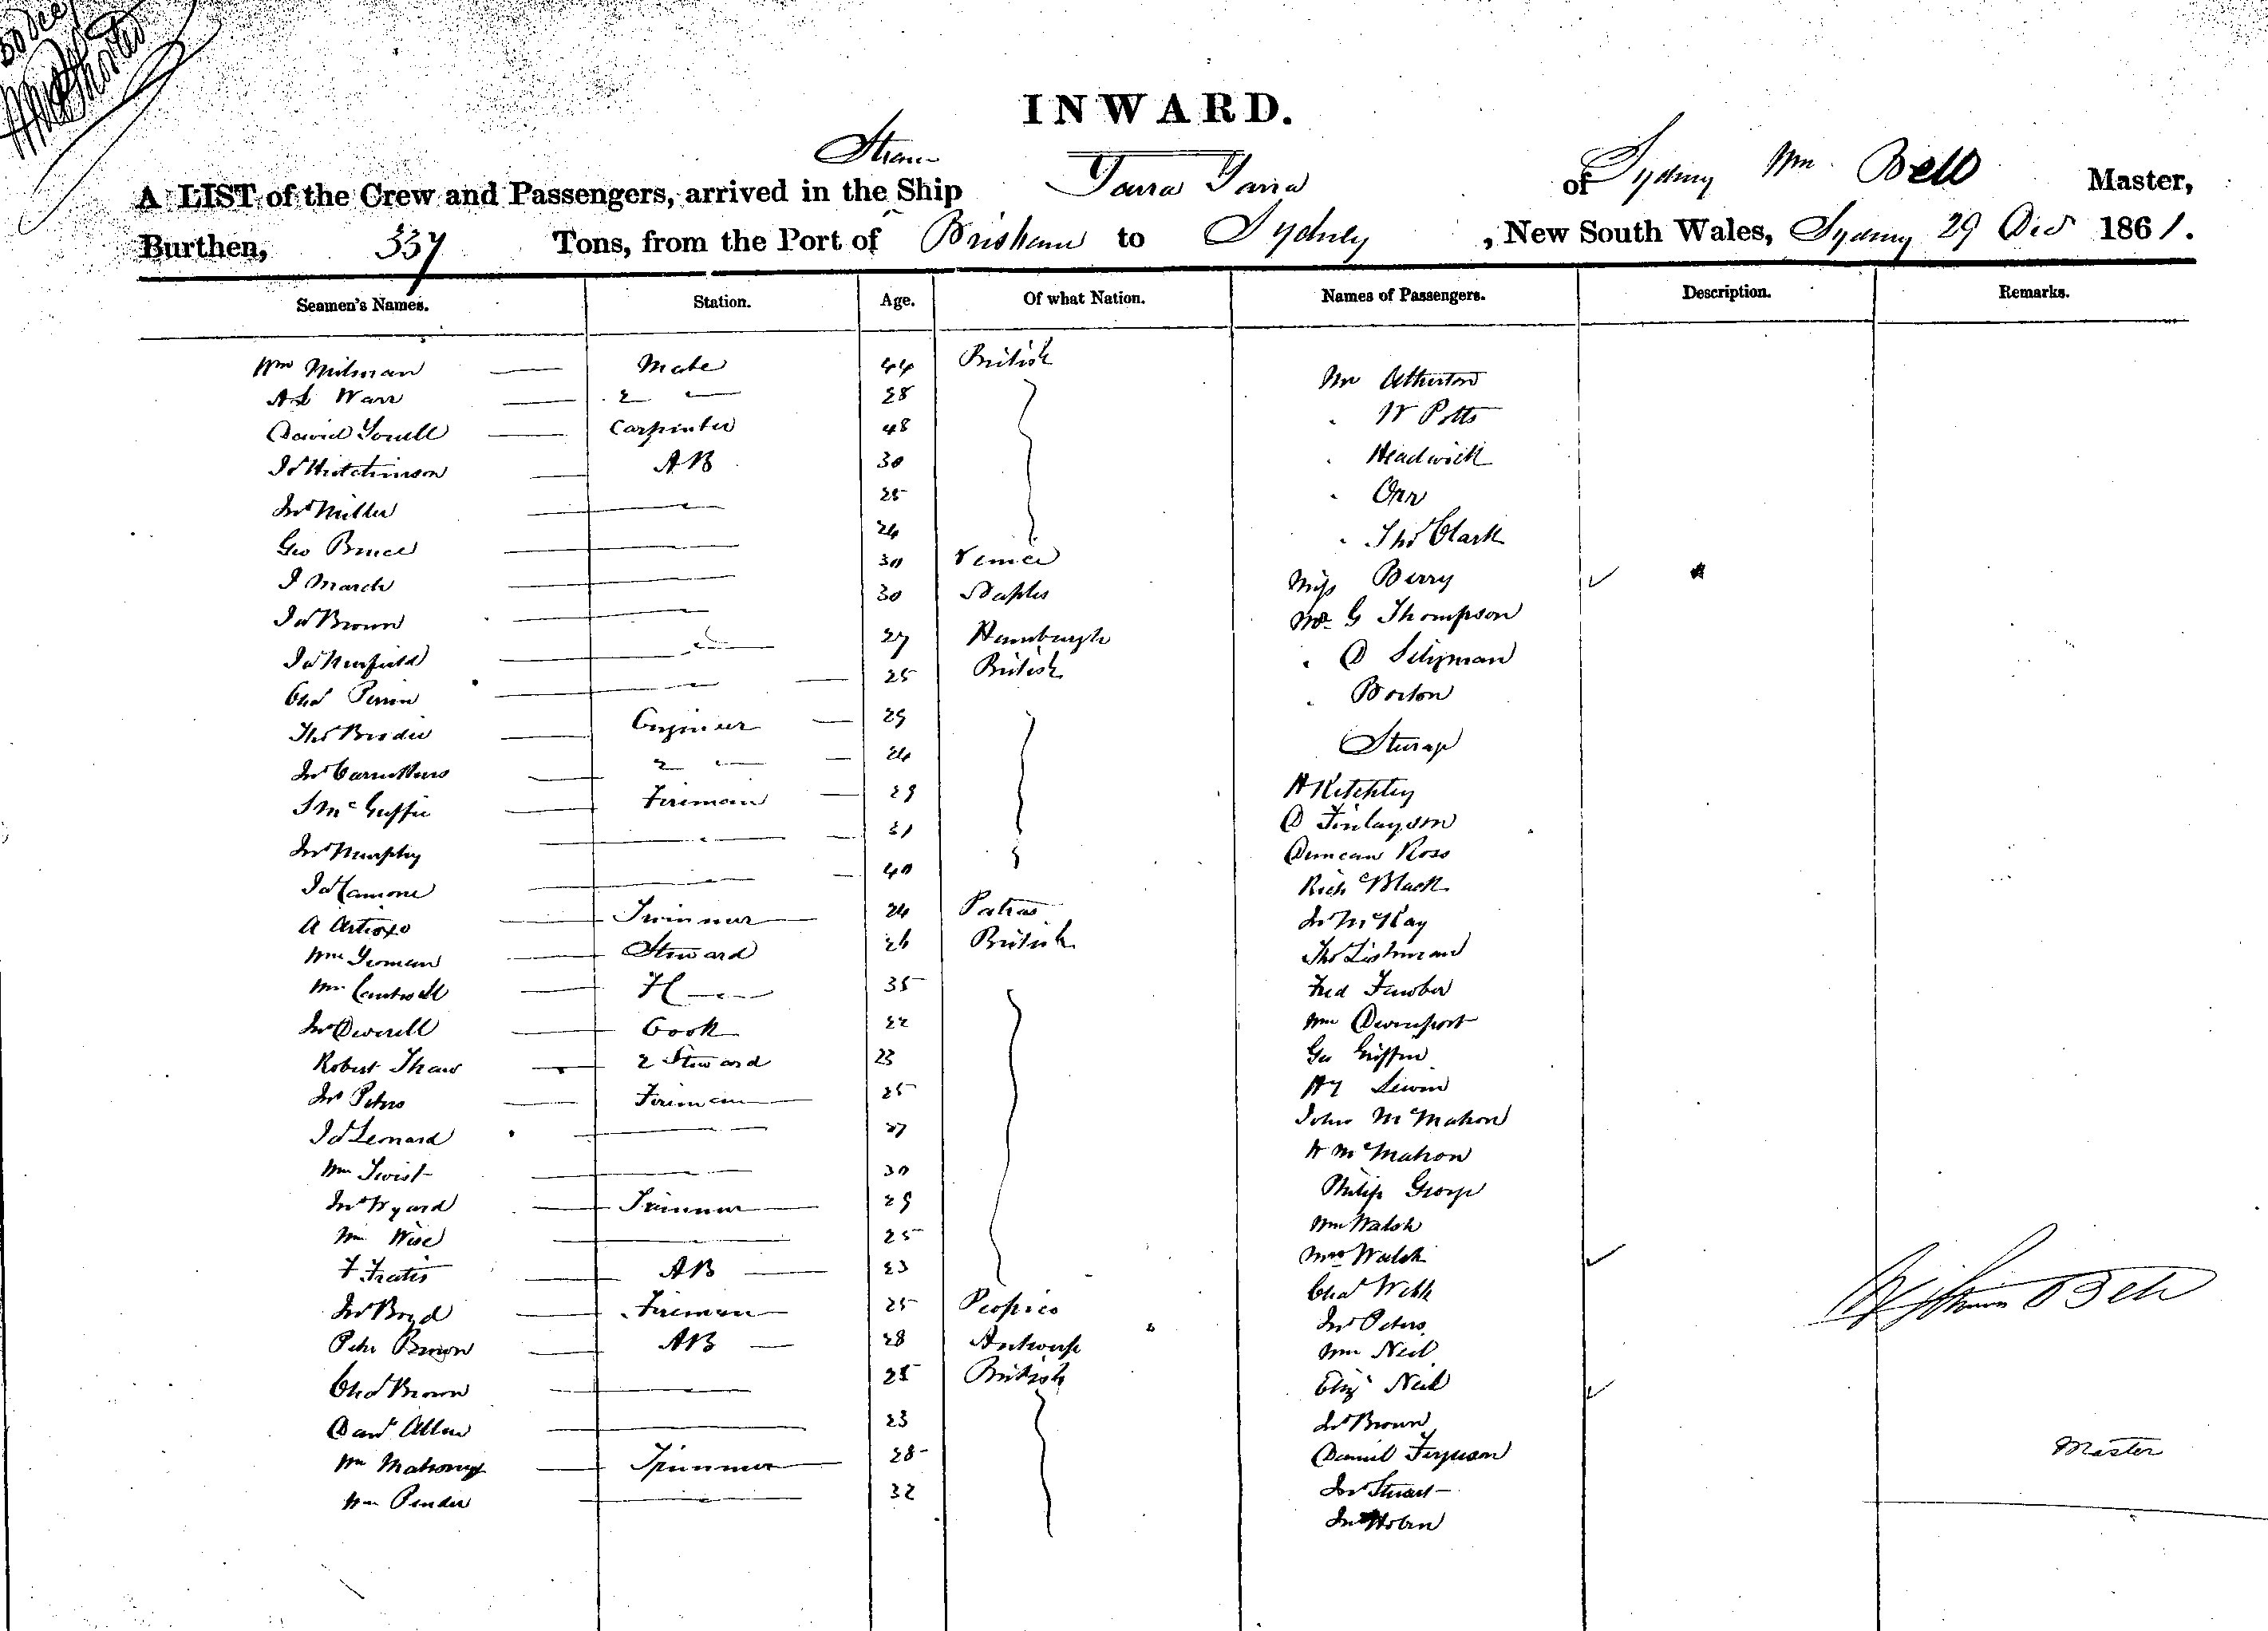 INWARD.
Steam
A LIST of the Crew and Passengers, arrived in the Ship Yarra Yarra of Sydney Wm Bell Master,
Burthen, 337 Tons, from the Port of Brisbane to Sydney, New South Wales, Sydney 29 Dec 1861.
Seamen's Names. Station. Age. Of what Nation. Names of Passengers. Description. Remarks.
Wm Milman Mate 44 British Mr Atherton
Warr 2 28 " W Potts
David Youell Carpenter 48 " Headwick
Js Hutchinson AB 30 " Orr
Jno Miller 25 " Thos Clark
Geo Bruce 24 Miss Berry
J March 30 Venice Mr G Thompson
Js Brown 30 Naples " D Seligman
27 Hamburgh " Borton
Chas Perrin 25 British
Thos Brodie Engineer 29 H Ketchley
Jno Carruthers 2 24 D Finlayson
J McGuffie Fireman 29 Duncan Ross
Jno Murphy 31 Rich Black
40 Jno McKay
A Trimmer 24 Patras Thos Lishman
Wm Yeoman Steward 26 British Fred
Wm Cantwell F 35 Wm Davenport
Jno Deverell Cook 22 Geo Griffin
Robert Shaw 2 Steward 23 Hy Lewin
Jno Peters Fireman 25 John McMahon
Js Lenard 27 H McMahon
Wm Twist 30 Philip George
Jno Wyard Trimmer 29 Wm Walsh
Wm Wise 25 Mrs Walsh
F Fratis AB 23 Chas Webb
Jno Boyd Fireman 25 Jno Peters
Peter Brown AB 28 Antwerp Wm Neil
Chas Brown 25 British Eliz Neil
Davd Allen 23 Jno Brown
Wm Mahoney Trimmer 28 Daniel Ferguson
Wm Pender 32 Jno Stuart
Jno
William Bell
Master